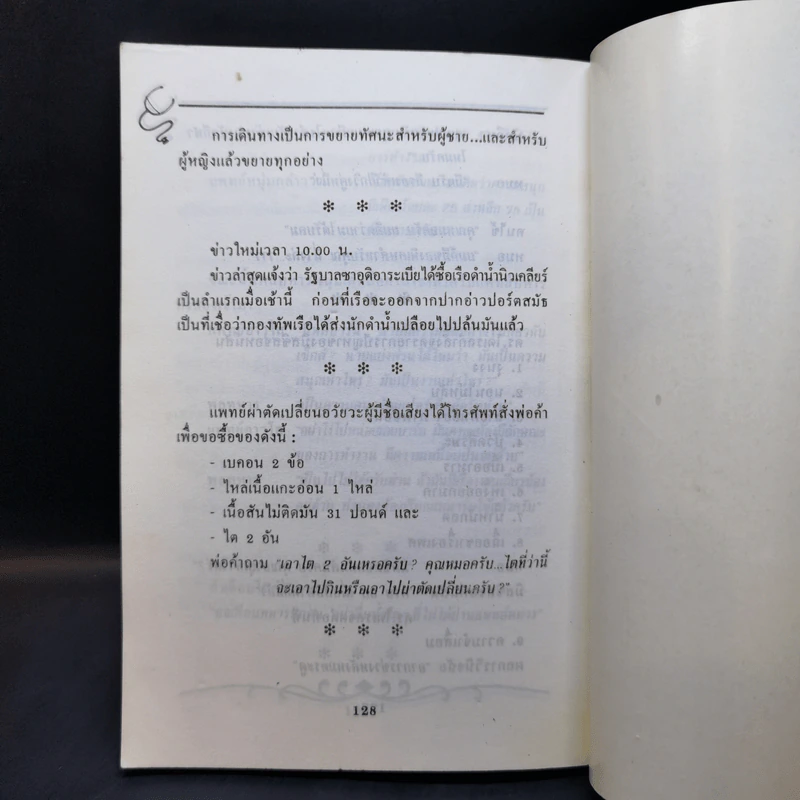 การเดินทางเป็นการขยายทัศนะสำหรับผู้ชาย...และสำหรับ
ผู้หญิงแล้วขยายทุกอย่าง
* * *
ข่าวใหม่เวลา 10.00 น.
ข่าวล่าสุดแจ้งว่า รัฐบาลซาอุดิอาระเบียได้ซื้อเรือดำน้ำนิวเคลียร์
เป็นลำแรกเมื่อเช้านี้ ก่อนที่เรือจะออกจากปากอ่าวปอร์ตสมัธ
เป็นที่เชื่อว่ากองทัพเรือได้ส่งนักดำน้ำเปลือยไปปล้นมันแล้ว
* * *
แพทย์ผ่าตัดเปลี่ยนอวัยวะผู้มีชื่อเสียงได้โทรศัพท์สั่งพ่อค้า
เพื่อขอซื้อของดังนี้ :
- เบคอน 2 ข้อ
- ไหล่เนื้อแกะอ่อน 1 ไหล่
- เนื้อสันไม่ติดมัน 31 ปอนด์ และ
- ไต 2 อัน
พ่อค้าถาม "เอาไต 2 อันเหรอครับ? คุณหมอครับ...ไตที่ว่านี้
จะเอาไปกินหรือเอาไปผ่าตัดเปลี่ยนครับ?"
* * *
128